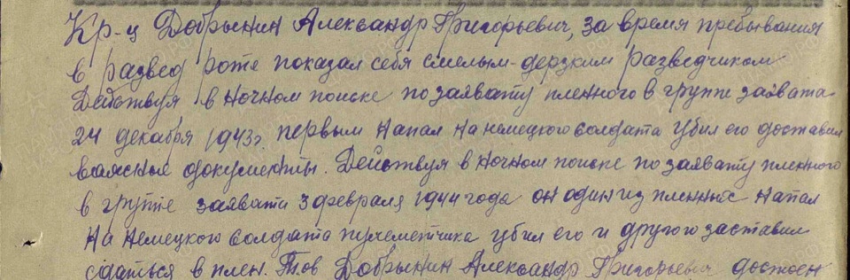 Кр-ц Добрынин Александр Григорьевич, за время пребывания
в развед роте показал себя смелым-дерзким разведчиком
Действуя в ночном поиске по захвату пленного в группе захвата
24 декабря 1943г. первым напал на немецкого солдата убил его доставил
важные документы. Действуя в ночном поиске по захвату пленного
в группе захвата 3 февраля 1944 года он один из пленных напал
на немецкого солдата пулеметчика убил его и другого заставил
сдаться в плен. Тов Добрынин Александр Григорьевич достоен